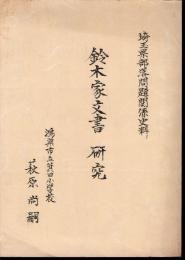 埼玉県部落問題関係史料
鈴木家文書 研究
鴻巣市立箕田小学校
萩原尚嗣